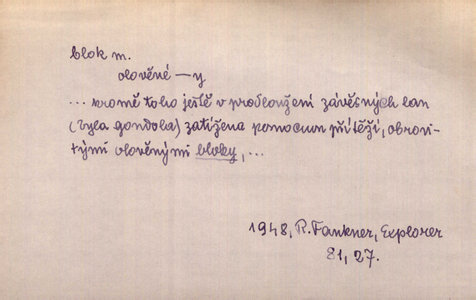 blok m.
olověné —y
... kromě toho ještě v prodloužení závěsných lan
(byla gondola) zatížena pomocnou přítěží, obrovi-
tými olověnými bloky, ...
1948, R. Faukner, Explorer
81, 27.